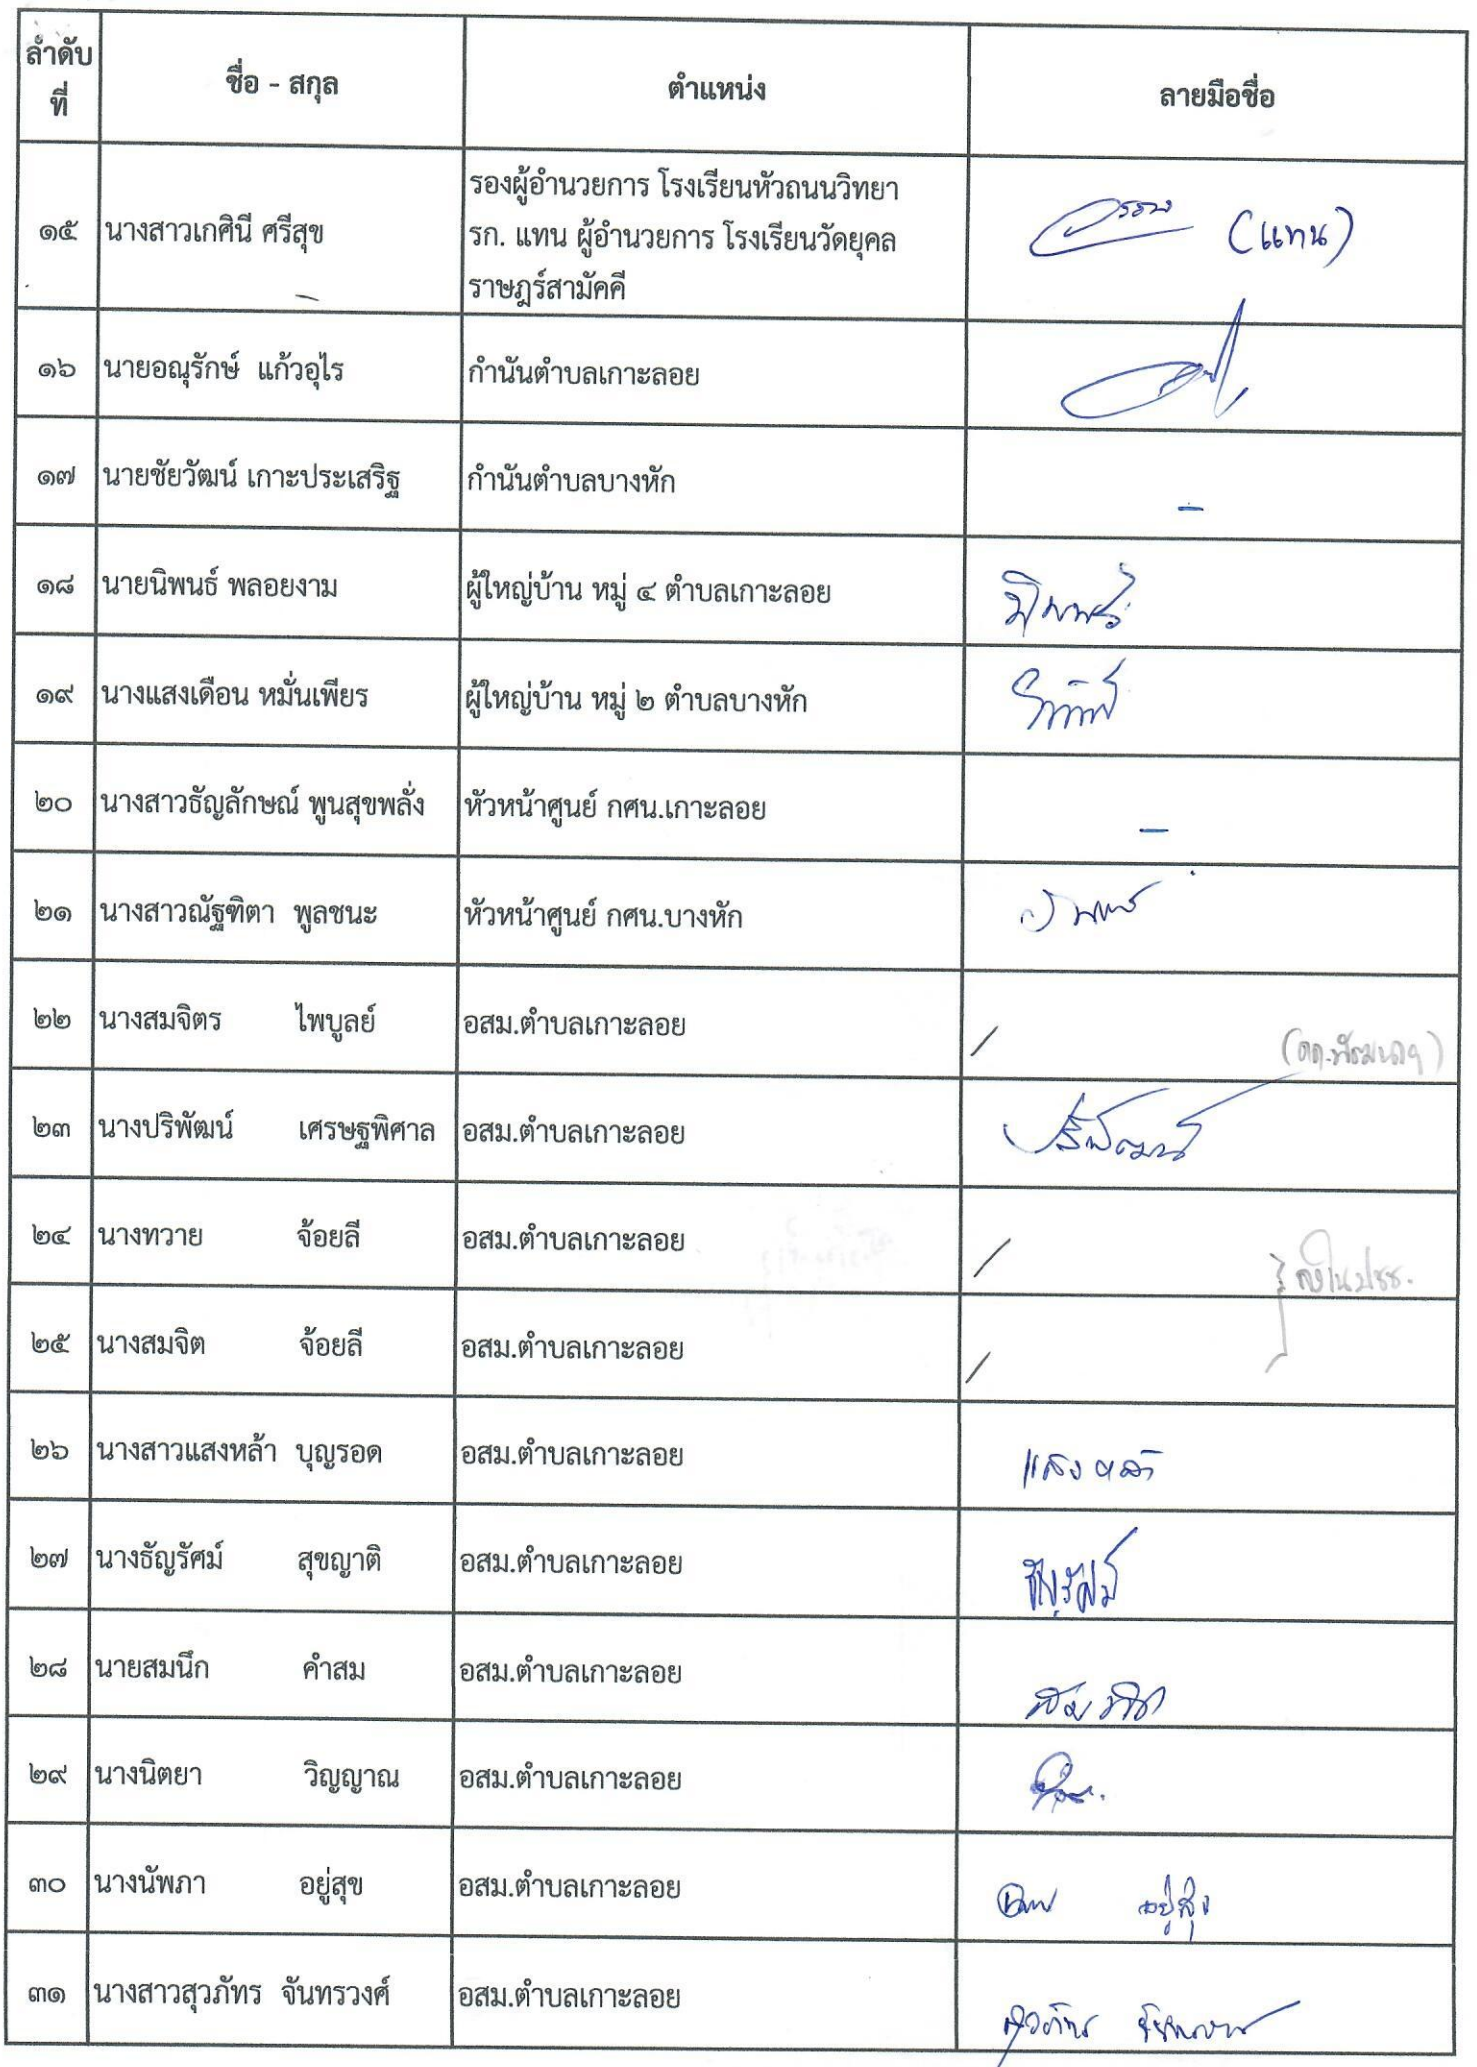 ลำดับที่ ชื่อ - สกุล ตำแหน่ง ลายมือชื่อ
๑๕ นางสาวเกศินี ศรีสุข รองผู้อำนวยการ โรงเรียนหัวถนนวิทยา
รก. แทน ผู้อำนวยการ โรงเรียนวัดยุคล
ราษฎร์สามัคคี
(แทน)
๑๖ นายอณุรักษ์ แก้วอุไร กำนันตำบลเกาะลอย
๑๗ นายชัยวัฒน์ เกาะประเสริฐ กำนันตำบลบางหัก -
๑๘ นายนิพนธ์ พลอยงาม ผู้ใหญ่บ้าน หมู่ ๔ ตำบลเกาะลอย
๑๙ นางแสงเดือน หมั่นเพียร ผู้ใหญ่บ้าน หมู่ ๒ ตำบลบางหัก
๒๐ นางสาวธัญลักษณ์ พูนสุขพลั่ง หัวหน้าศูนย์ กศน.เกาะลอย -
๒๑ นางสาวณัฐฑิตา พูลชนะ หัวหน้าศูนย์ กศน.บางหัก
๒๒ นางสมจิตร ไพบูลย์ อสม.ตำบลเกาะลอย /
๒๓ นางปริพัฒน์ เศรษฐพิศาล อสม.ตำบลเกาะลอย ปริพัฒน์
๒๔ นางทวาย จ้อยลี อสม.ตำบลเกาะลอย /
๒๕ นางสมจิต จ้อยลี อสม.ตำบลเกาะลอย /
๒๖ นางสาวแสงหล้า บุญรอด อสม.ตำบลเกาะลอย แสงหล้า
๒๗ นางธัญรัศม์ สุขญาติ อสม.ตำบลเกาะลอย ธัญรัศม์
๒๘ นายสมนึก คำสม อสม.ตำบลเกาะลอย
๒๙ นางนิตยา วิญญาณ อสม.ตำบลเกาะลอย
๓๐ นางนัพภา อยู่สุข อสม.ตำบลเกาะลอย อยู่สุข
๓๑ นางสาวสุวภัทร จันทรวงศ์ อสม.ตำบลเกาะลอย